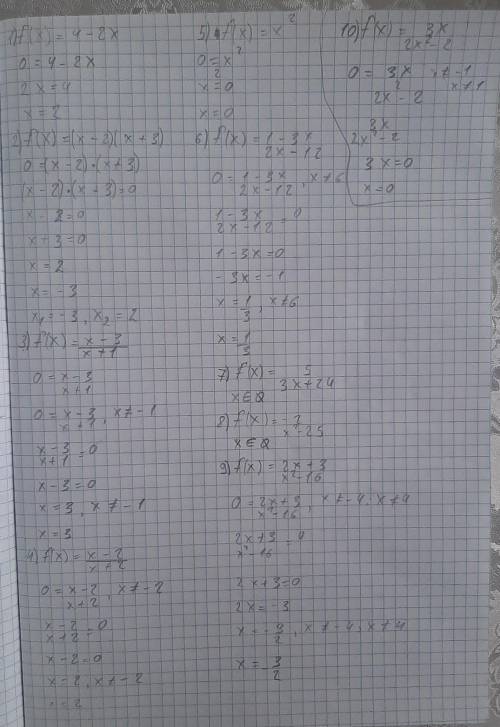 1) f(x) = 4 - 2x
0 = 4 - 2x
2x = 4
x = 2
2) f(x) = (x - 2)(x + 3)
0 = (x - 2)·(x + 3)
(x - 2)·(x + 3) = 0
x - 2 = 0
x + 3 = 0
x = 2
x = -3
x₁ = -3, x₂ = 2
3) f(x) = x - 3 / x + 1
0 = x - 3 / x + 1
0 = x - 3 / x + 1, x ≠ -1
x - 3 / x + 1 = 0
x - 3 = 0
x = 3, x ≠ -1
x = 3
4) f(x) = x - 2 / x + 2
0 = x - 2 / x + 2, x ≠ -2
x - 2 / x + 2 = 0
x - 2 = 0
x = 2, x ≠ -2
x = 2
5) f(x) = x²
0 = x²
x² = 0
x = 0
6) f(x) = 1 - 3x / 2x - 12
0 = 1 - 3x / 2x - 12, x ≠ 6
1 - 3x / 2x - 12 = 0
1 - 3x = 0
-3x = -1
x = 1/3, x ≠ 6
x = 1/3
7) f(x) = 5 / 3x + 24
x ∈ Q
8) f(x) = -7 / x² - 25
x ∈ Q
9) f(x) = 2x + 3 / x² - 16
0 = 2x + 3 / x² - 16, x ≠ -4, x ≠ 4
2x + 3 / x² - 16 = 0
2x + 3 = 0
2x = -3
x = -3/2, x ≠ -4, x ≠ 4
x = -3/2
10) f(x) = 3x / 2x² - 2
0 = 3x / 2x² - 2 x ≠ -1 x ≠ 1
3x / 2x² - 2
3x = 0
x = 0